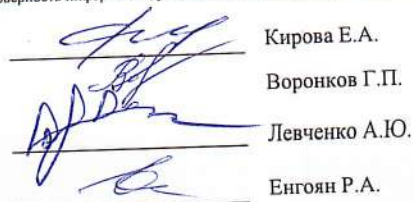 Кирова Е.А.
Воронков Г.П.
Левченко А.Ю.
Енгоян Р.А.